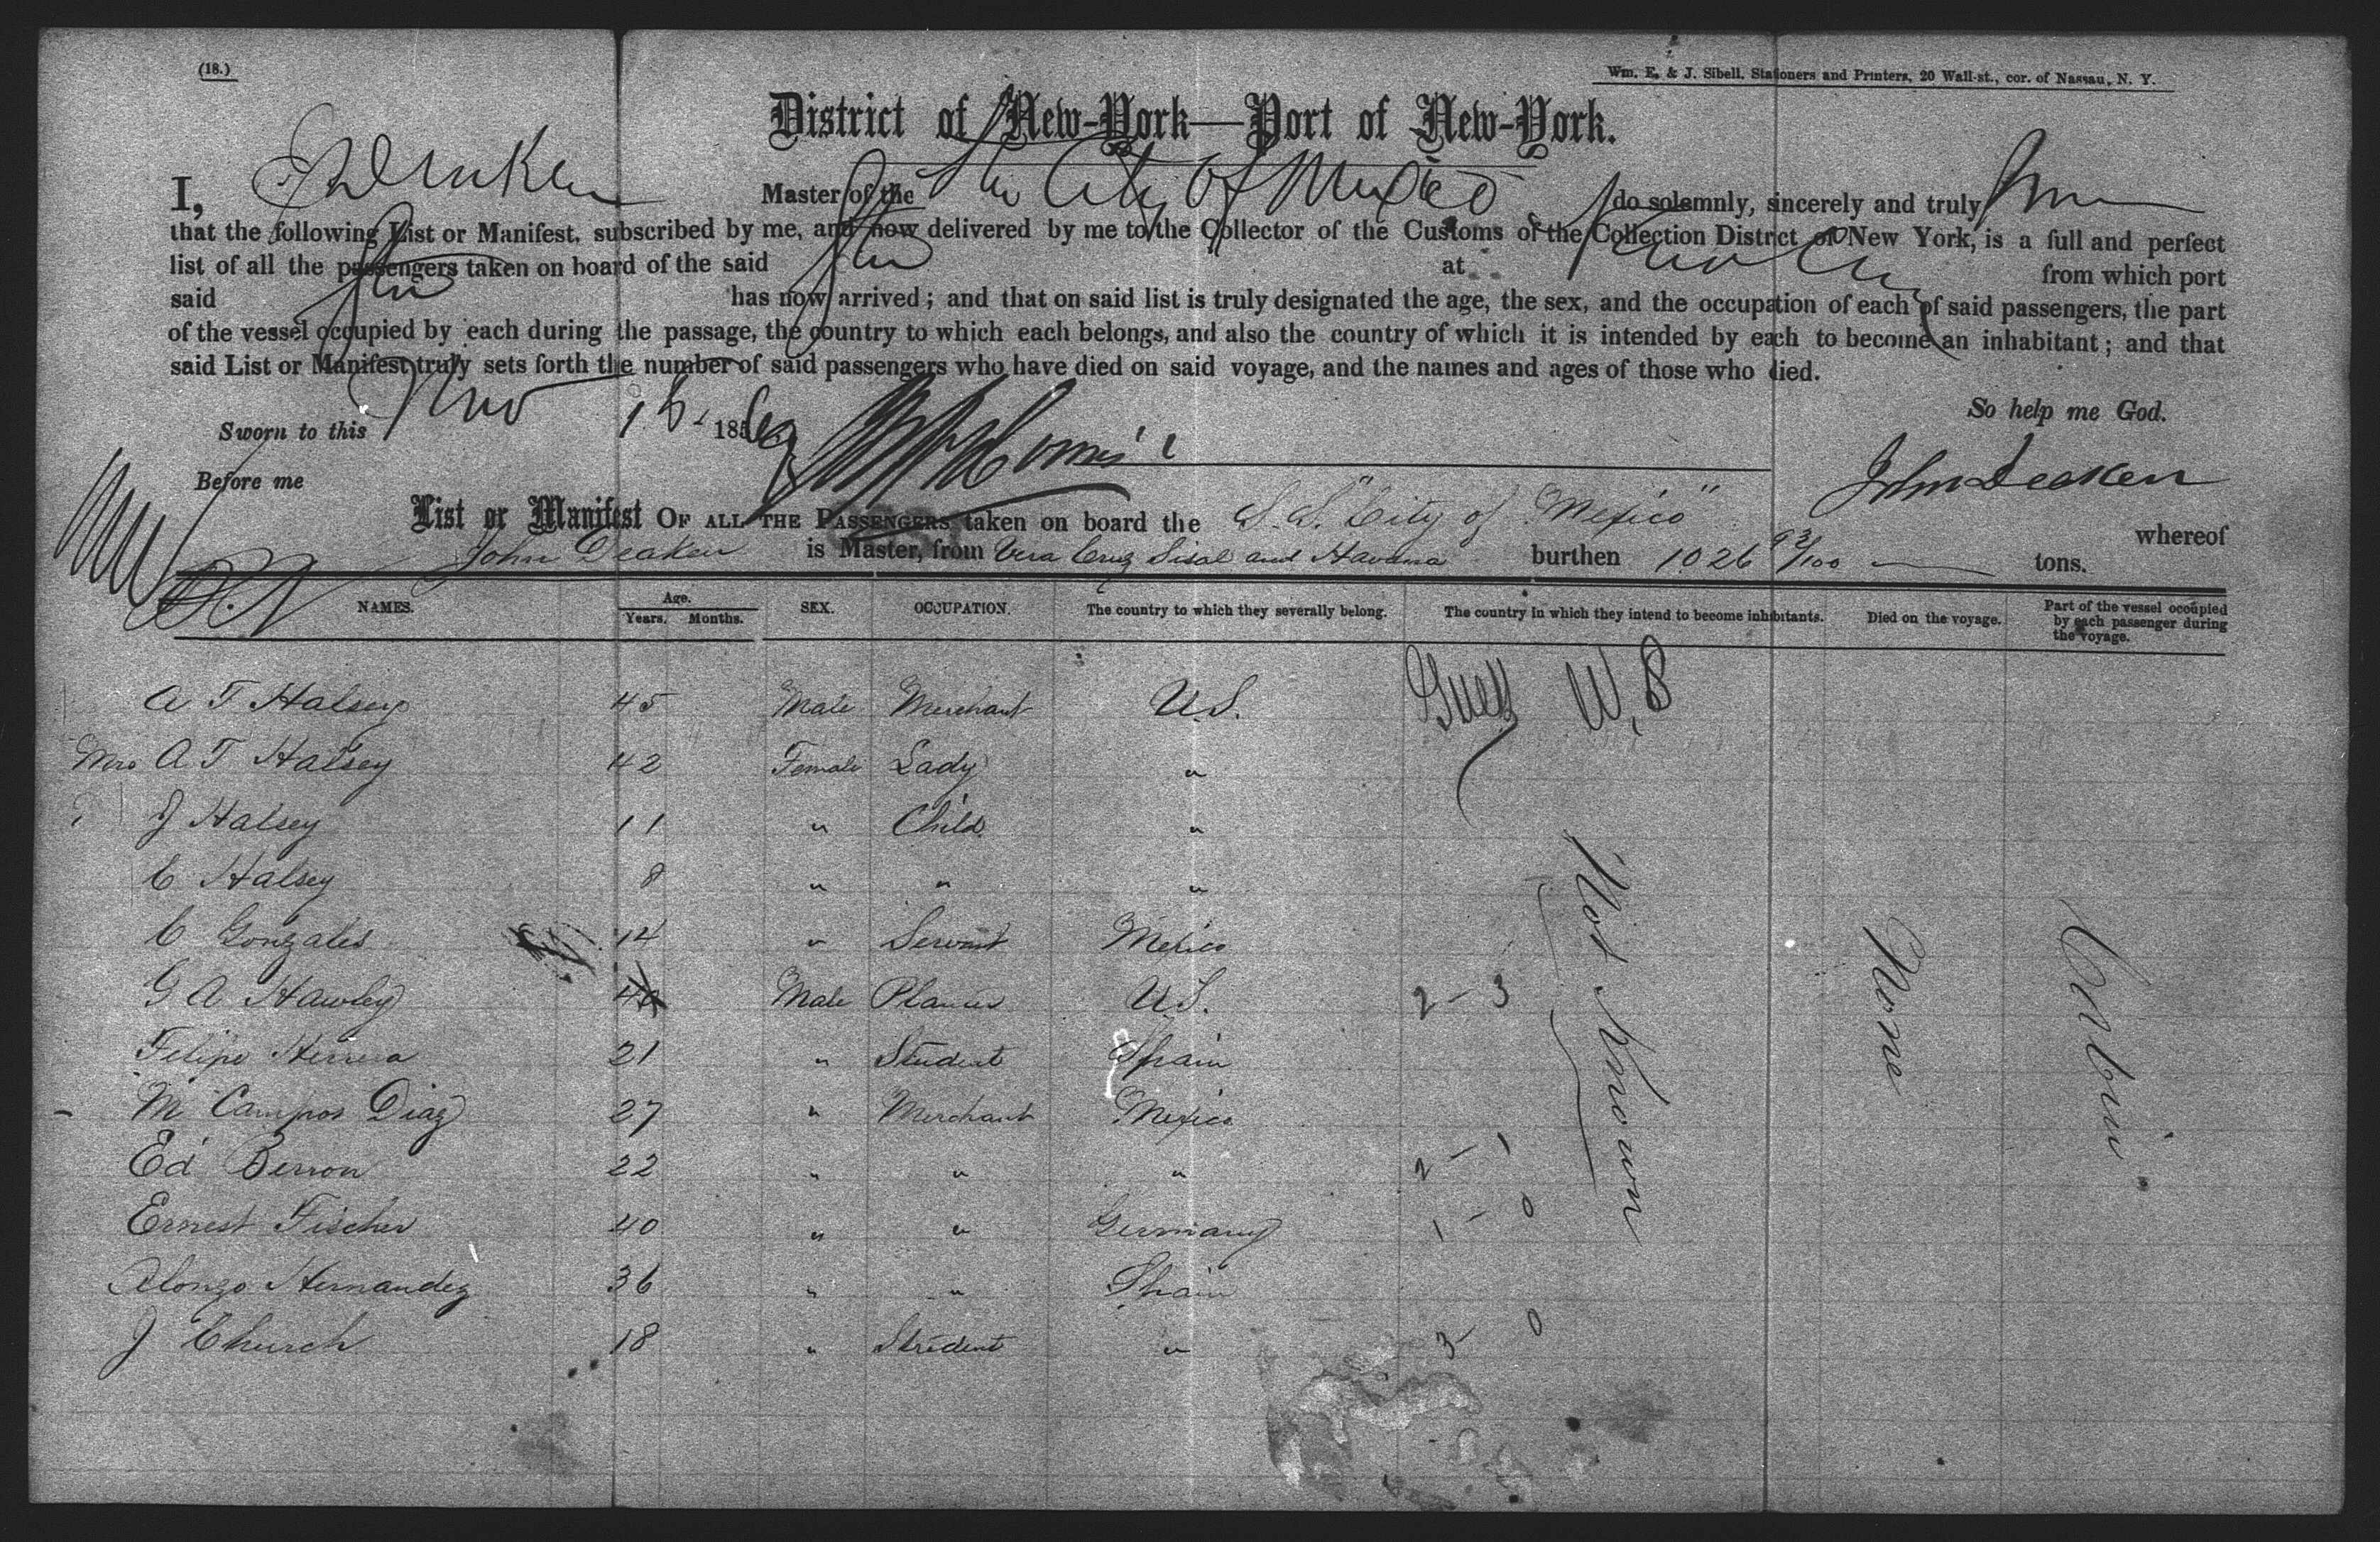 (18.)
Wm. E. & J. Sibell, Stationers and Printers, 20 Wall-st., cor. of Nassau, N. Y.
District of New-York—Port of New-York.
I, Master of the Str City of Mexico do solemnly, sincerely and truly
that the following List or Manifest, subscribed by me, and now delivered by me to the Collector of the Customs of the Collection District of New York, is a full and perfect
list of all the passengers taken on board of the said Str at Vera Cruz from which port
said Str has now arrived; and that on said list is truly designated the age, the sex, and the occupation of each of said passengers, the part
of the vessel occupied by each during the passage, the country to which each belongs, and also the country of which it is intended by each to become an inhabitant; and that
said List or Manifest truly sets forth the number of said passengers who have died on said voyage, and the names and ages of those who died.
So help me God.
Sworn to this Nov 16 1869
John Deaken
Before me
List or Manifest OF ALL THE PASSENGERS taken on board the S.S. "City of Mexico" whereof
John Deaken is Master, from Vera Cruz Sisal and Havana burthen 1026 93/100 tons.
NAMES. Age. Years. Months. SEX. OCCUPATION. The country to which they severally belong. The country in which they intend to become inhabitants. Died on the voyage. Part of the vessel occupied by each passenger during the voyage.
A T Halsey 45 Male Merchant U.S. W. B
Mrs A T Halsey 42 Female Lady "
J Halsey 11 " Child "
C Halsey 8 " " "
C Gonzales 14 " Servant Mexico
G A Hawley 40 Male Planter U.S. 2 - 3
Felipe Herrera 21 " Student Spain
M Campos Diaz 27 " Merchant Mexico
Ed Berron 22 " " " 2 - 1
Ernest Fischer 40 " " Germany 1 - 0
Alonzo Hernandez 36 " " Spain
J Church 18 " Student " 3 - 0
Not Known
None
Cabin